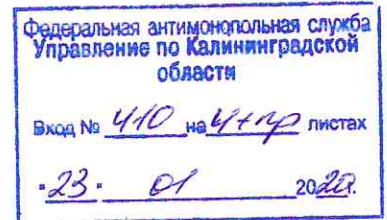 Федеральная антимонопольная служба
Управление по Калининградской
области
Вход № 410 на 4+пр листах
"23" 01 2020г.